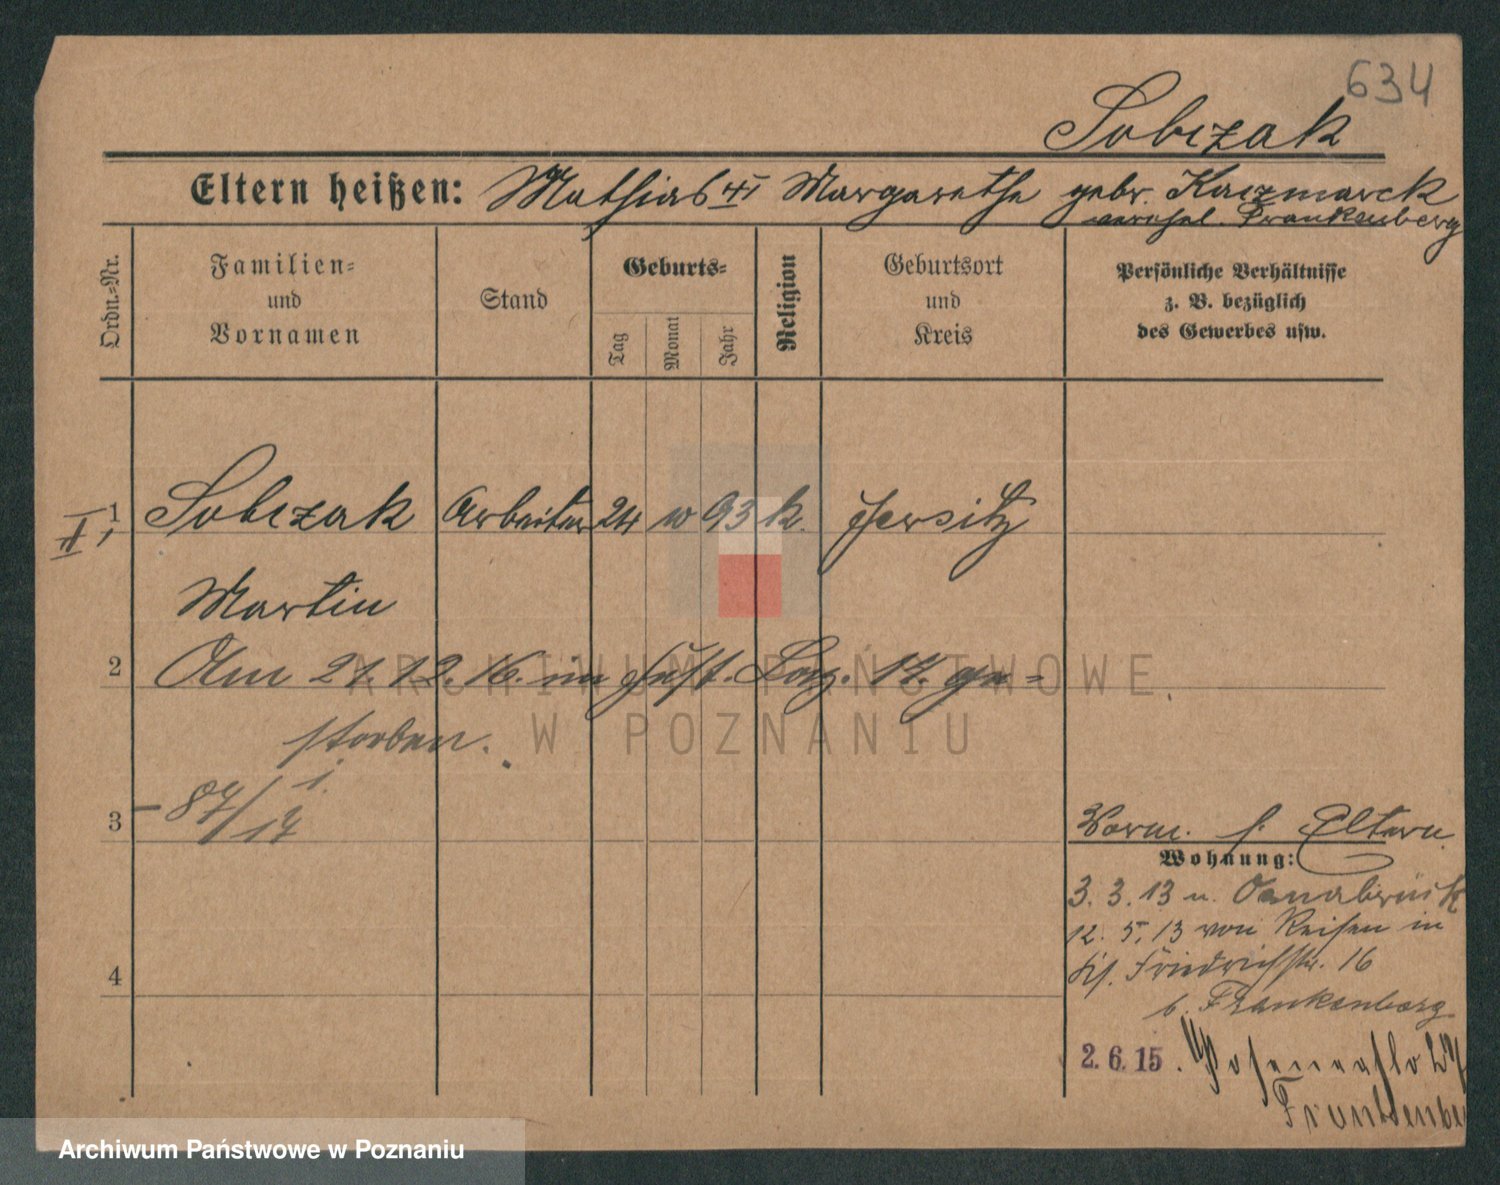 634
Sobczak
Eltern heißen: Mathias u Margarethe gebr. Kaczmarek
verehel. Frankenberg
Ordn.-Nr.
Familien-
und
Vornamen
Stand
Geburts-
Tag
Monat
Jahr
Religion
Geburtsort
und
Kreis
Persönliche Verhältnisse
z. B. bezüglich
des Gewerbes usw.
1 Sobczak Arbeiter 24 10 93 k. Jersitz
II,
Martin
2 Am 21. 12. 16. im Fest. Laz. 14. ge-
storben.
- 87/1 17
3
Vorm. b. Eltern
Wohnung:
3. 3. 13 n. Osnabrück
12. 5. 13 von Reisen in
Friedrichstr. 16
b. Frankenberg
4
2. 6. 15.
ARCHIWUM PAŃSTWOWE
W POZNANIU
Archiwum Państwowe w Poznaniu